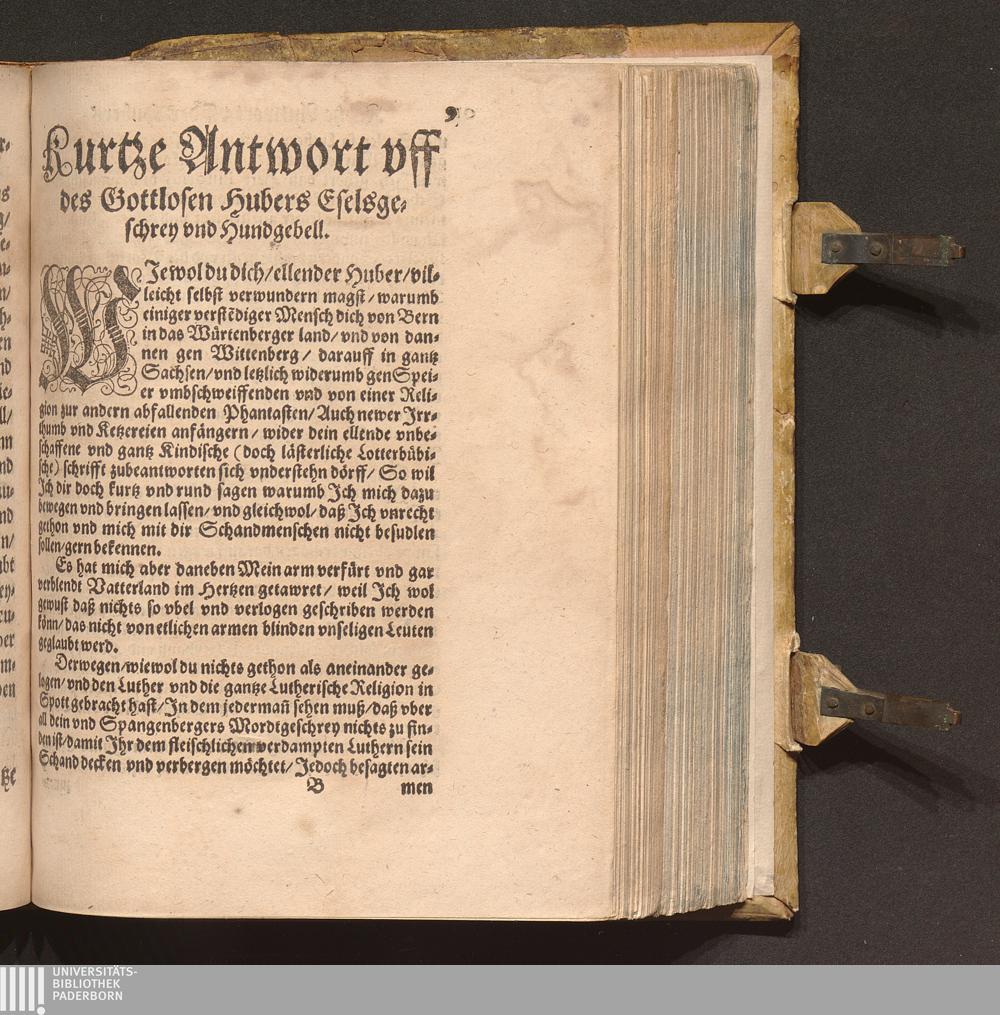 Kurtze Antwort vff
des Gottlosen Hubers Eselsge-
schrey vnd Hundgebell.
WJewol du dich/ellender Huber/vil-
leicht selbst verwundern magst/warumb
einiger verstēdiger Mensch dich von Bern
in das Würtenberger land/vnd von dan-
nen gen Wittenberg/darauff in gantz
Sachsen/vnd letzlich widerumb gen Spei-
er vmbschweiffenden vnd von einer Reli-
gion zur andern abfallenden Phantasten/Auch newer Jrr-
thumb vnd Ketzereien anfängern/wider dein ellende vnbe-
schaffene vnd gantz Kindische (doch lästerliche Lotterbübi-
sche) schrifft zubeantworten sich vnderstehn dörff/So wil
Jch dir doch kurtz vnd rund sagen warumb Jch mich dazu
bewegen vnd bringen lassen/vnd gleichwol/daß Jch vnrecht
gethon vnd mich mit dir Schandmenschen nicht besudlen
sollen/gern bekennen.
Es hat mich aber daneben Mein arm verfürt vnd gar
verblendt Vatterland im Hertzen getawret/weil Jch wol
gewust daß nichts so vbel vnd verlogen geschriben werden
könn/das nicht von etlichen armen blinden vnseligen Leuten
geglaubt werd.
Derwegen/wiewol du nichts gethon als aneinander ge-
logen/vnd den Luther vnd die gantze Lutherische Religion in
Spott gebracht hast/Jn dem jederman̄ sehen muß/daß vber
all dein vnd Spangenbergers Mordtgeschrey nichts zu fin-
den ist/damit Jhr dem fleischlichen verdampten Luthern sein
Schand decken vnd verbergen möchtet/Jedoch besagten ar-
B men
UNIVERSITÄTS-
BIBLIOTHEK
PADERBORN